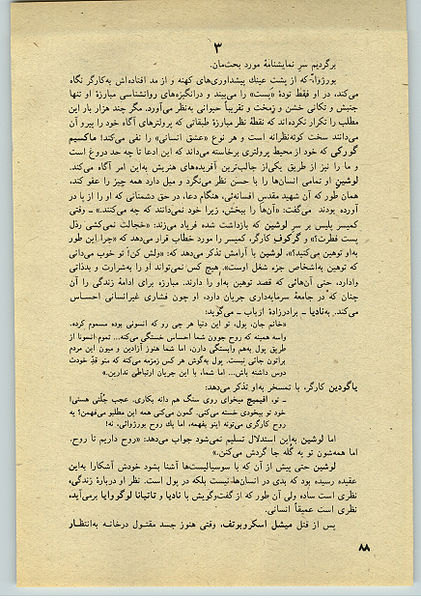 ۳
برگردیم سرِ نمایشنامهٔ مورد بحث‌مان.
بورژوا، که از پشت عینك پیشداوری‌های کهنه و از مد افتاده‌اش به‌کارگر نگاه
می‌کند، در او فقط تودهٔ «پست» را می‌بیند و درانگیزه‌های روانشناسی مبارزهٔ او تنها
جنبش و تکانی خشن و زمخت و تقریباً حیوانی به‌نظر می‌آورد. مگر چند هزار بار این
مطلب را تکرار نکرده‌اند که نقطهٔ نظر مبارزهٔ طبقاتی که پرولترهای آگاه خود را پیرو آن
می‌دانند سخت کوته‌نظرانه است و هر نوع «عشق انسانی» را نفی می‌کند! ماکسیم
گورکی که خود از محیط پرولتری برخاسته می‌داند که این ادعا تا چه حد دروغ است
و ما را نیز از طریق یکی‌از جالب‌ترین آفریده‌های هنریش به‌این امر آگاه می‌کند.
لوشین او تمامی انسان‌ها را با حسن نظر می‌نگرد و میل دارد همه چیز را عفو کند،
همان طور که آن شهید مقدس افسانه‌ئی، هنگام دعا، در حق دشمنانی که او را از پا در
آورده بودند می‌گفت: «آن‌ها را ببخش، زیرا خود نمی‌دانند که چه می‌کنند.» ــ وقتی
کمیسر پلیس بر سر لوشین که بازداشت شده فریاد می‌زند: «خجالت نمی‌کشی رذل
پست فطرت؟» و گرکوفِ کارگر، کمیسر را مورد خطاب قرار می‌دهد که «چرا این طور
به‌او توهین می‌کنید؟»، لوشین با آرامش تذکر می‌دهد که: «ولش کن! تو خوب می‌دانی
که توهین به‌اشخاص جزء شغل اوست». هیچ کس نمی‌تواند او را به‌شرارت و بدذاتی
وادارد، حتی آن‌هائی که قصد توهین به‌او را دارند. مبارزه برای ادامهٔ زندگی را آن
چنان که در جامعهٔ سرمایه‌داری جریان دارد، او چون فشاری غیرانسانی احساس
می‌کند. به‌نادیا ــ برادرزادهٔ ارباب ــ می‌گوید:
«خانم جان، پول، تو این دنیا هر چی رو که انسونی بوده مسموم کرده.
واسه همینه که روح جوون شما احساس خستگی می‌کنه... تموم انسونا از
طریق پول به‌هم وابستگی دارن، اما شما هنوز آزادین و میون این مردم
براتون جائی نیست. پول به‌گوش هر کس زمزمه می‌کنه که منو قدِ خودت
دوس داشته باش... اما شما، با این جریان ارتباطی ندارین.»
یاگودین کارگر، با تمسخر به‌او تذکر می‌دهد:
ــ تو، افیمیچ میخوای روی سنگ هم دانه بکاری. عجب جُلّتی هستی!
خود تو بیخودی خسته می‌کنی. گمون می‌کنی همه این مطلبو می‌فهمن؟ یه
روح کارگری می‌تونه اینو بفهمه، اما یك روح بورژوائی، نه!
اما لوشین به‌این استدلال تسلیم نمی‌شود جواب می‌دهد: «روح داریم تا روح.
اما همه‌شون تو یه گُله جا گردش می‌کنن.»
لوشین حتی پیش از آن که با سوسیالیست‌ها آشنا بشود خودش آشکارا به‌این
عقیده رسیده بود که بدی در انسان‌ها نیست بلکه در پول است. نظر او دربارهٔ زندگی،
نظری است ساده ولی آن طور که از گفت‌وگویش با نادیا و تاتیانا لوگووایا برمی‌آید،
نظری است عمیقاً انسانی.
پس از قتل میشل اسکروبوتف، وقتی هنوز جسد مقتول درخانه به‌انتظار
۸۸